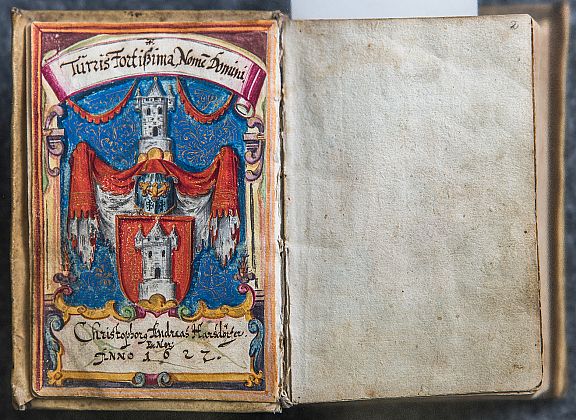 Turris Fortißima Nomē Domini.
Christophorꝰ Andreas Harsdörfer.
ANNO 1627.
2